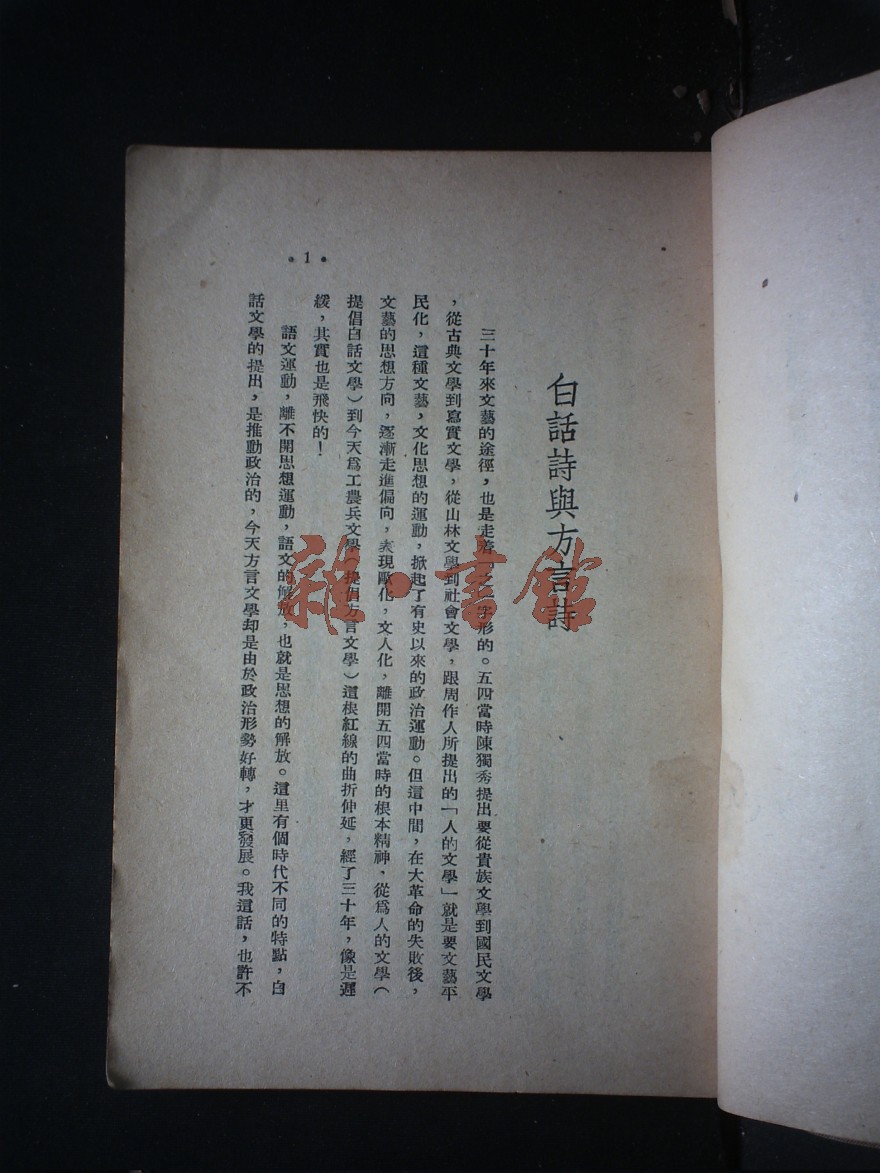 白話詩與方言詩
三十年來文藝的途徑，也是走着「之」字形的。五四當時陳獨秀提出要從貴族文學到國民文學
，從古典文學到寫實文學，從山林文學到社會文學，跟周作人所提出的「人的文學」就是要文藝平
民化，這種文藝，文化思想的運動，掀起了有史以來的政治運動。但這中間，在大革命的失敗後，
文藝的思想方向，逐漸走進偏向，表現歐化，文人化，離開五四當時的根本精神，從爲人的文學（
提倡白話文學）到今天爲工農兵文學（提倡方言文學）這根紅線的曲折伸延，經了三十年，像是遲
緩，其實也是飛快的！
語文運動，離不開思想運動，語文的解放，也就是思想的解放。這里有個時代不同的特點，白
話文學的提出，是推動政治的，今天方言文學却是由於政治形勢好轉，才更發展。我這話，也許不
•1•
雜·書館